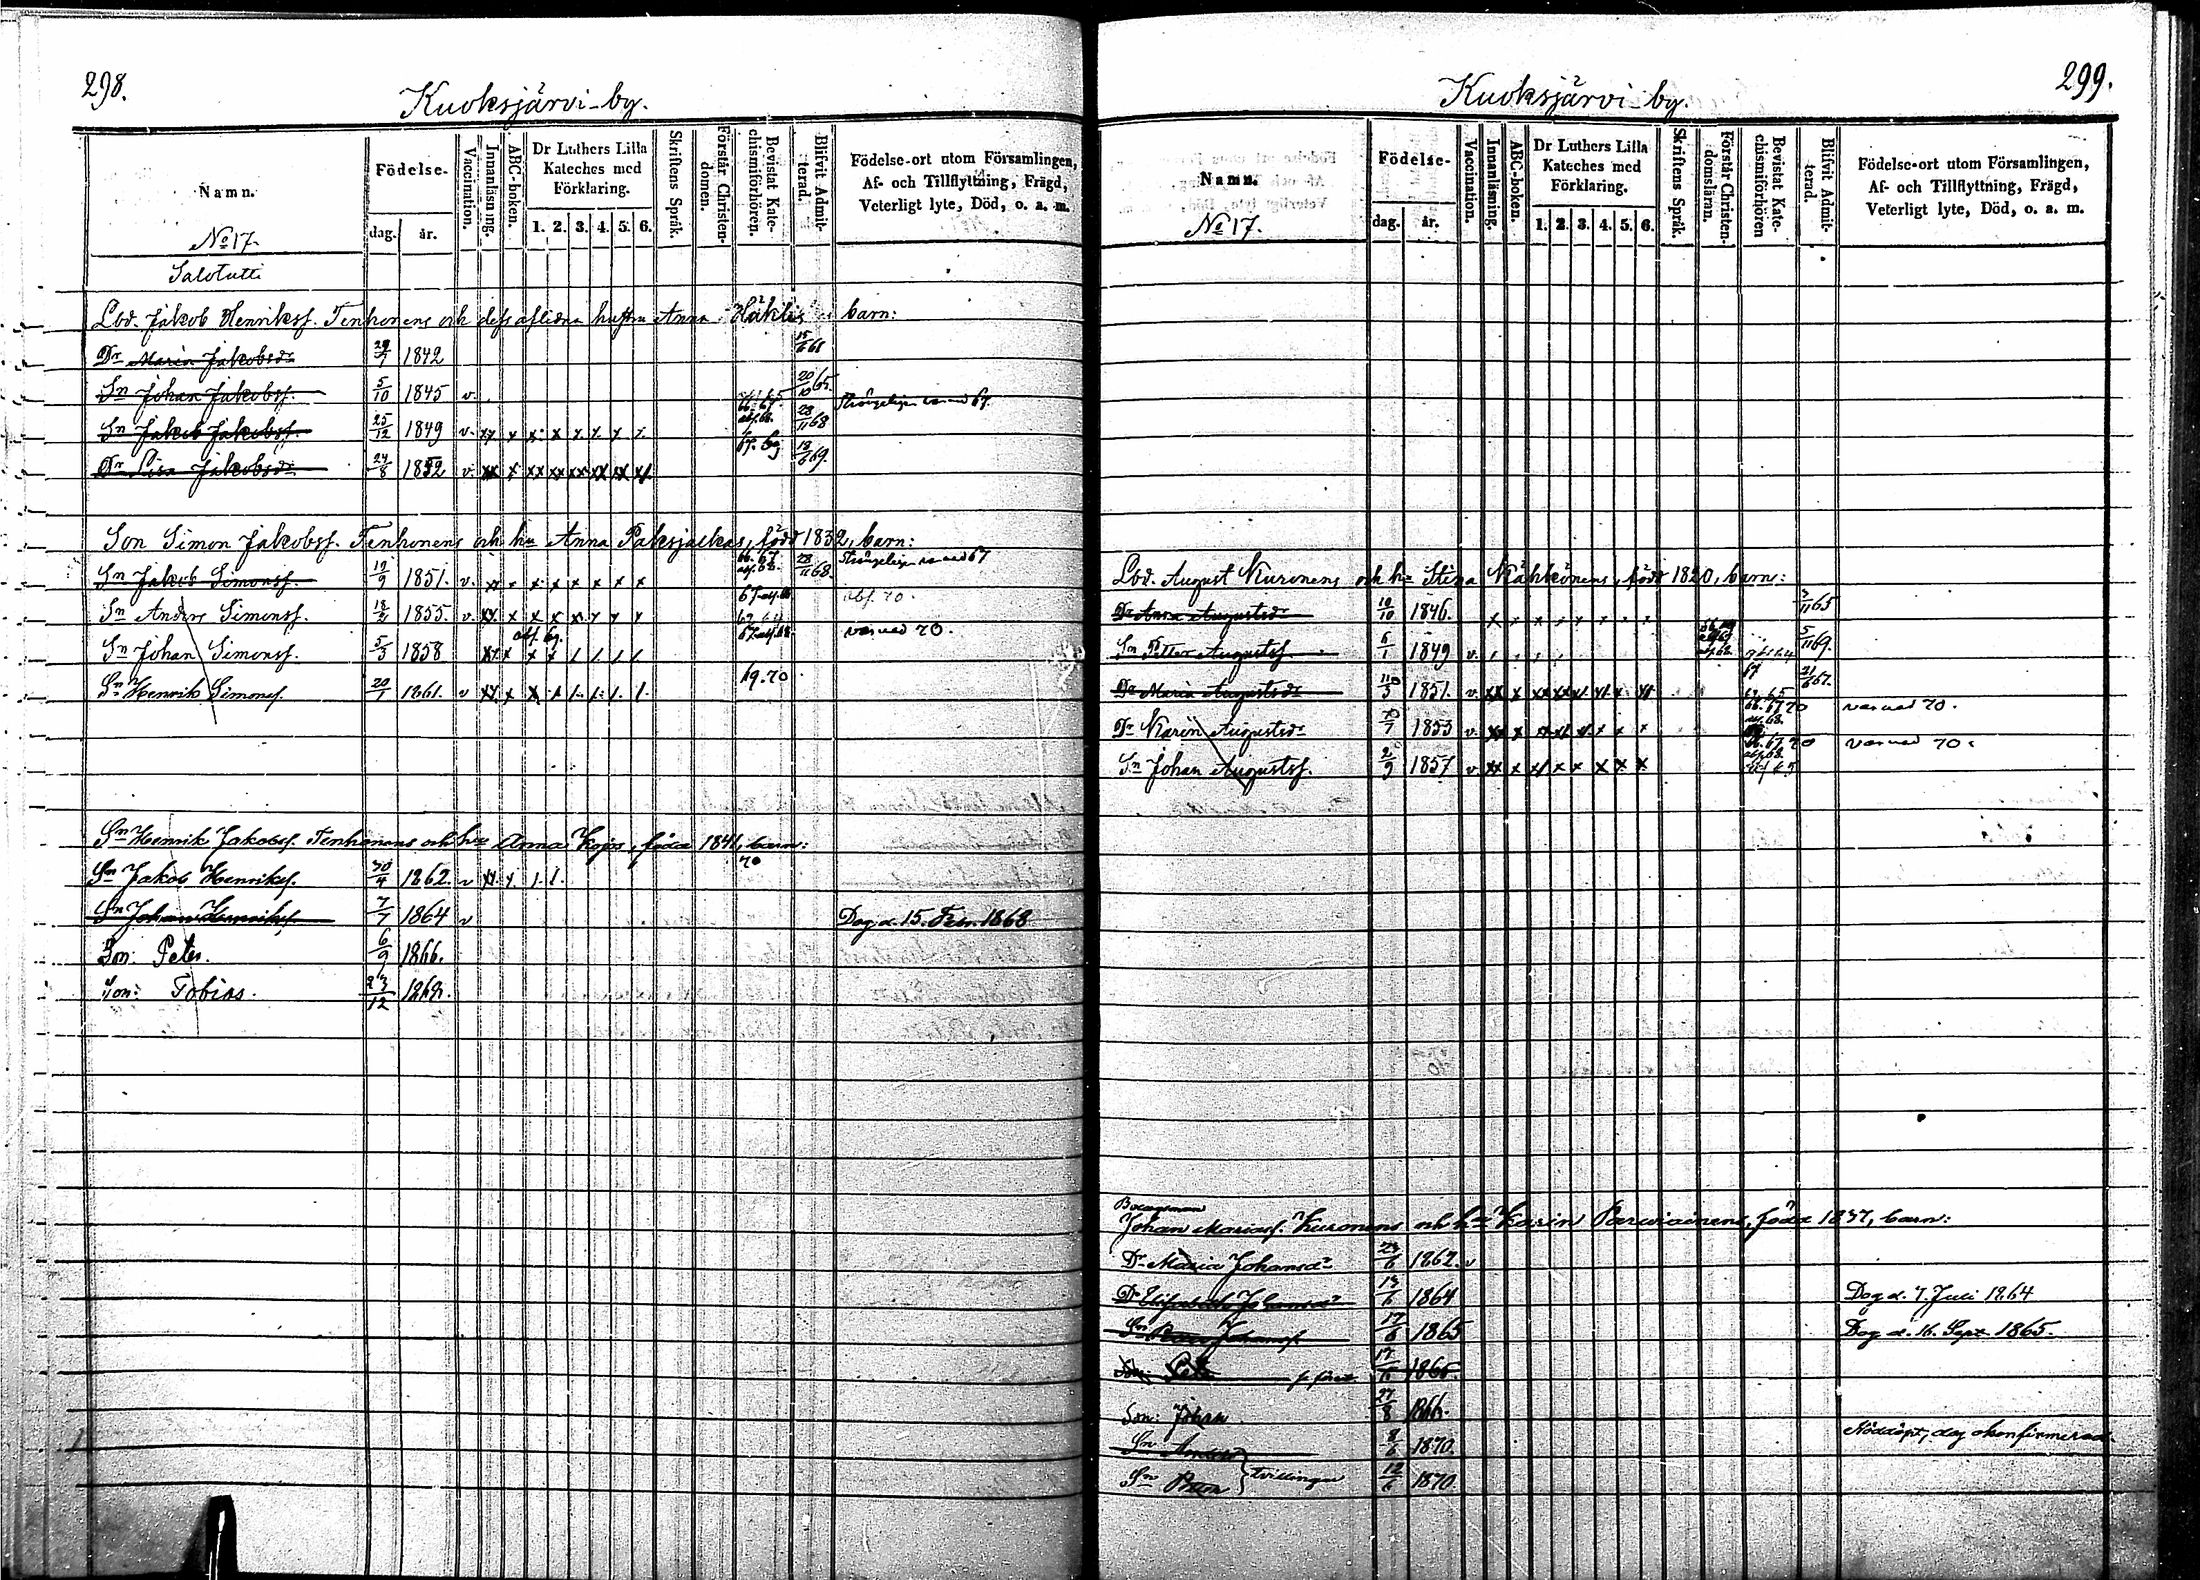 298.
Kuoksjärvi by.
Namn.
Födelse-
dag. år.
Vaccination.
Innanläsning.
ABC-boken.
Dr Luthers Lilla Kateches med Förklaring.
1. 2. 3. 4. 5. 6.
Skriftens Språk.
Förstår Christendomen.
Bevistat Katechismiförhören.
Blifvit Admitterad.
Födelse-ort utom Församlingen, Af- och Tillflyttning, Frägd, Veterligt lyte, Död, o. a. m.
No 17.
Salotutti
Lbd. Jakob Henrikss. Tenhonens och dess aflidna hustru Anna Hähtis barn:
Dr Maria Jakobsdr 29/7 1842 15/6 61
Sn Johan Jakobss. 5/10 1845 v. 20/10 65.
Sn Jakob Jakobss. 25/12 1849 v. 28/11 68
Dr Lisa Jakobsdr 24/8 1852 v. 13/6 69.
Son Simon Jakobss. Tenhonens och hu Anna Paksjalkas, född 1832, barn:
Sn Jakob Simonss. 12/9 1851. v. 66. 67 28/11 68.
Sn Anders Simonss. 1855. v. abs. 70.
Sn Johan Simonss. 5/3 1858 70.
Sn Henrik Simonss. 20/1 1861. v 69. 70
Sn Henrik Jakobss. Tenhonens och hu Anna Kojos, född 1841, barn:
Sn Jakob Henrikss. 30/4 1862. v 70
Sn Johan Henrikss. 7/7 1864 v Dog d. 15. Febr. 1868
Son: Peter. 6/9 1866.
Son: Tobias. 23/12
299.
Kuoksjärvi by.
Namn.
Födelse-
dag. år.
Vaccination.
Innanläsning.
ABC-boken.
Dr Luthers Lilla Kateches med Förklaring.
1. 2. 3. 4. 5. 6.
Skriftens Språk.
Förstår Christendomsläran.
Bevistat Katechismiförhören
Blifvit Admitterad.
Födelse-ort utom Församlingen, Af- och Tillflyttning, Frägd, Veterligt lyte, Död, o. a. m.
No 17.
Lbd. August Kuronens och hu Stina Kähkönens, född 1820, barn:
Dr Anna Augustsdr 10/10 1846. 3/11 65
Sn Petter Augustss. 6/1 1849 v. 5/11 69.
Dr Maria Augustsdr 1851. v. 21/6 67.
Dr Karin Augustsdr 1853 v. 70.
Sn Johan Augustss. 2/9 1857 v 70.
Johan Mariass. Kuronens och hu Karin Parwiainens, född 1837, barn:
Dr Maria Johansdr 1862. v
Dr Elisabeth Johansdr 13/6 1864 Dog d. 7. Juli 1864
Sn Johanss. 17/6 1865 Dog d. 16. Sept. 1865.
17/6 1865.
Son: Johan 27/8 1866.
Sn Anders 8/6 1870. Nöddöpt, dog okonfirmerad.
Sn 12/6 1870
tvillingar